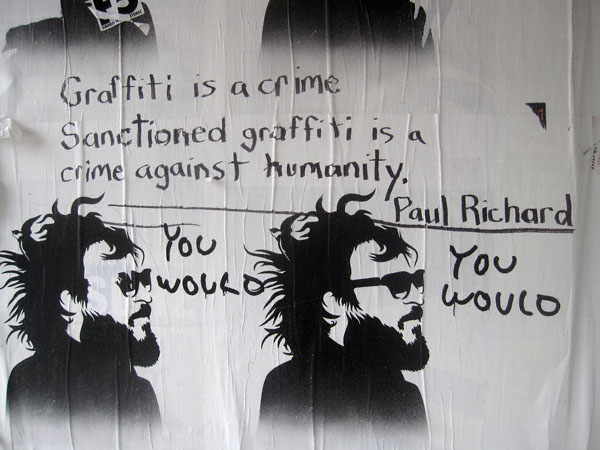 Graffiti is a crime
Sanctioned graffiti is a
crime against humanity.
Paul Richard
YOU
WOULD
YOU
WOULD